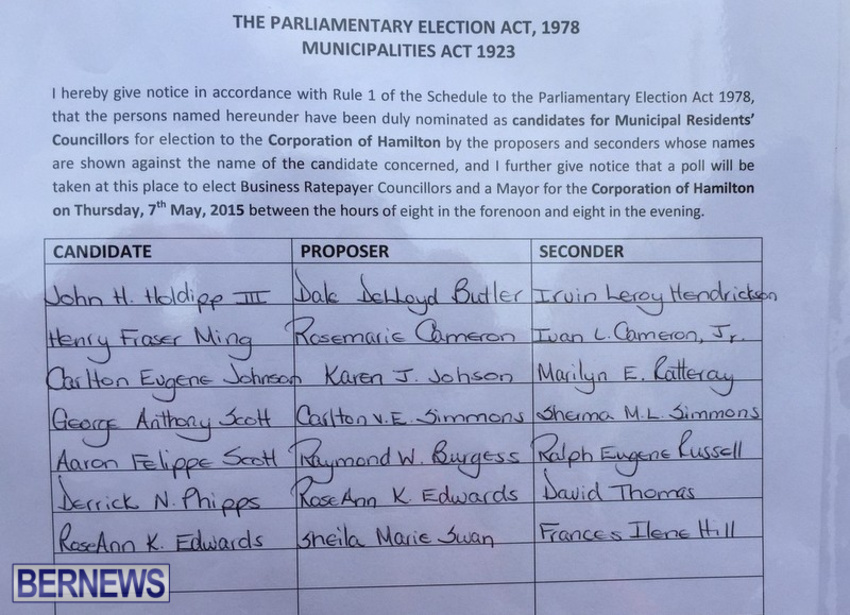 THE PARLIAMENTARY ELECTION ACT, 1978
MUNICIPALITIES ACT 1923
I hereby give notice in accordance with Rule 1 of the Schedule to the Parliamentary Election Act 1978,
that the persons named hereunder have been duly nominated as candidates for Municipal Residents'
Councillors for election to the Corporation of Hamilton by the proposers and seconders whose names
are shown against the name of the candidate concerned, and I further give notice that a poll will be
taken at this place to elect Business Ratepayer Councillors and a Mayor for the Corporation of Hamilton
on Thursday, 7th May, 2015 between the hours of eight in the forenoon and eight in the evening.
CANDIDATE PROPOSER SECONDER
John H. Holdipp III Dale DeLloyd Butler Irvin Leroy Hendrickson
Henry Fraser Ming Rosemarie Cameron Ivan L. Cameron, Jr.
Carlton Eugene Johnson Karen J. Johson Marilyn E. Ratteray
George Anthony Scott Carlton V.E. Simmons Sherma M.L. Simmons
Aaron Felippe Scott Raymond W. Burgess Ralph Eugene Russell
Derrick N. Phipps RoseAnn K. Edwards David Thomas
RoseAnn K. Edwards Sheila Marie Swan Frances Ilene Hill
BERNEWS